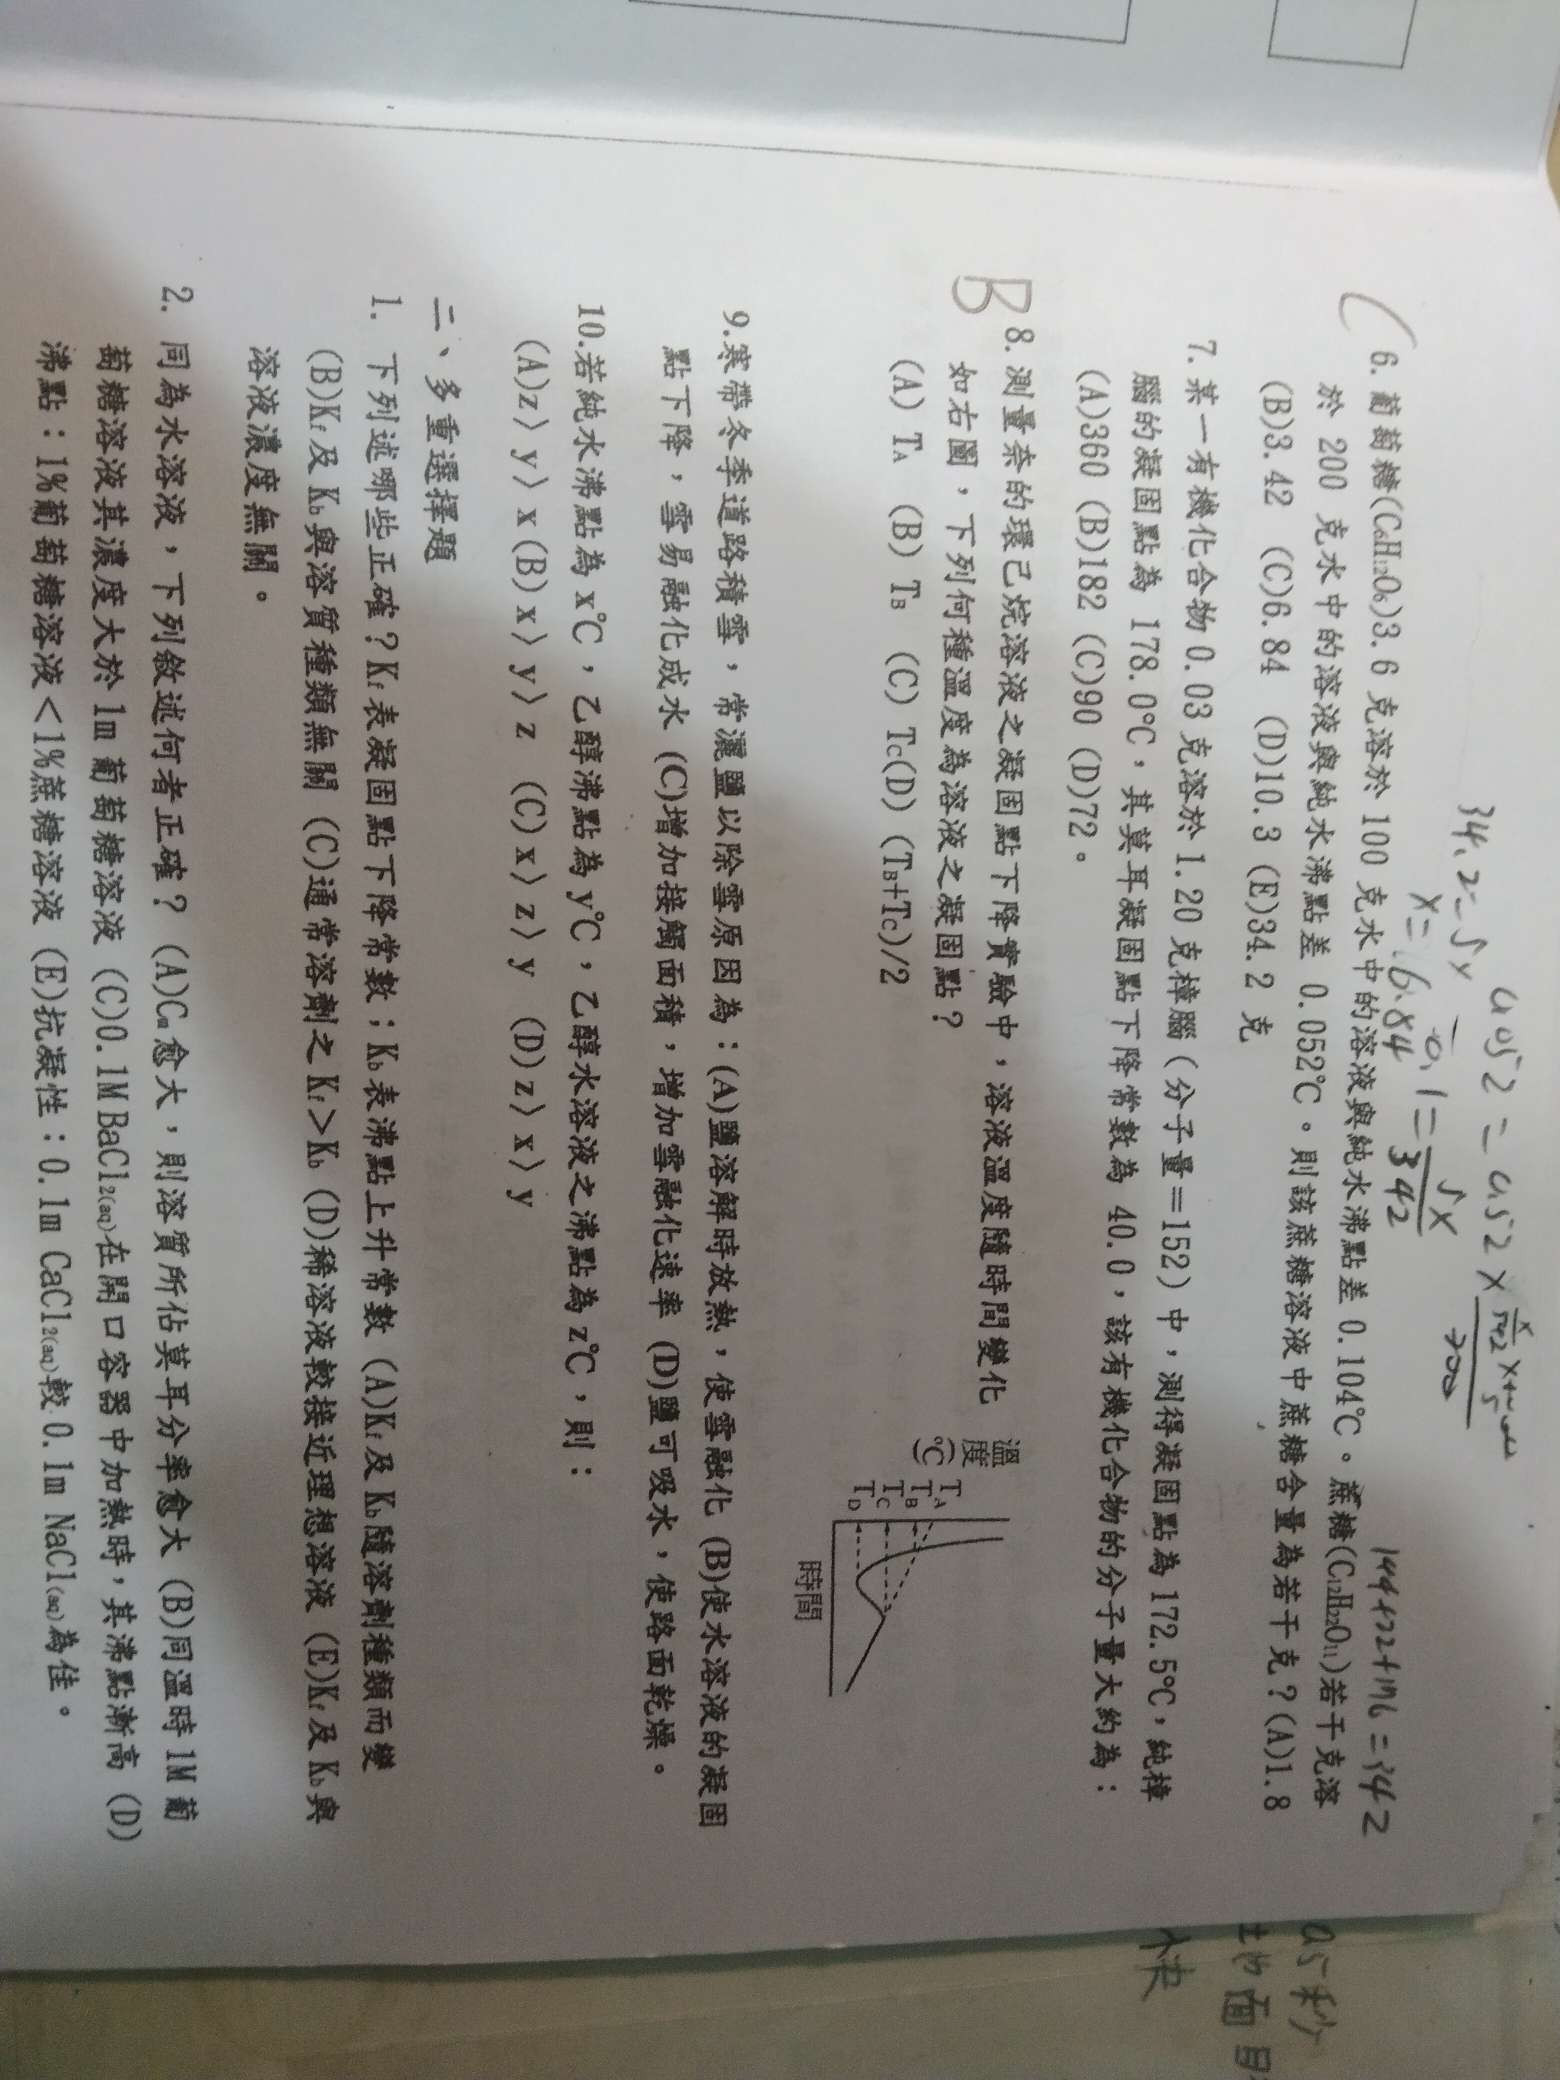 0.052=0.52×
34.2=5x
x=6.84
0.1=5x/342
144+22+176=342
C 6.葡萄糖(C₆H₁₂O₆)3.6克溶於100克水中的溶液與純水沸點差0.104℃。蔗糖(C₁₂H₂₂O₁₁)若干克溶
於 200 克水中的溶液與純水沸點差 0.052℃。則該蔗糖溶液中蔗糖含量為若干克?(A)1.8
(B)3.42 (C)6.84 (D)10.3 (E)34.2 克
7.某一有機化合物0.03克溶於1.20克樟腦(分子量=152)中,測得凝固點為172.5℃,純樟
腦的凝固點為 178.0℃,其莫耳凝固點下降常數為 40.0,該有機化合物的分子量大約為:
(A)360 (B)182 (C)90 (D)72。
B 8.測量奈的環己烷溶液之凝固點下降實驗中,溶液溫度隨時間變化
如右圖,下列何種溫度為溶液之凝固點?
(A) T_A (B) T_B (C) T_C(D) (T_B+T_C)/2
溫度(℃)
T_A
T_B
T_C
T_D
時間
9.寒帶冬季道路積雪,常灑鹽以除雪原因為:(A)鹽溶解時放熱,使雪融化 (B)使水溶液的凝固
點下降,雪易融化成水 (C)增加接觸面積,增加雪融化速率 (D)鹽可吸水,使路面乾燥。
10.若純水沸點為x℃,乙醇沸點為y℃,乙醇水溶液之沸點為z℃,則:
(A)z〉y〉x(B)x〉y〉z (C)x〉z〉y (D)z〉x〉y
二、多重選擇題
1. 下列述哪些正確?K_f表凝固點下降常數;K_b表沸點上升常數 (A)K_f及K_b隨溶劑種類而變
(B)K_f及K_b與溶質種類無關 (C)通常溶劑之K_f>K_b (D)稀溶液較接近理想溶液 (E)K_f及K_b與
溶液濃度無關。
2. 同為水溶液,下列敘述何者正確?(A)C_m愈大,則溶質所佔莫耳分率愈大 (B)同溫時1M葡
萄糖溶液其濃度大於1m葡萄糖溶液 (C)0.1M BaCl₂(aq)在開口容器中加熱時,其沸點漸高 (D)
沸點:1%葡萄糖溶液<1%蔗糖溶液 (E)抗凝性:0.1m CaCl₂(aq)較0.1m NaCl(aq)為佳。
秒
物面